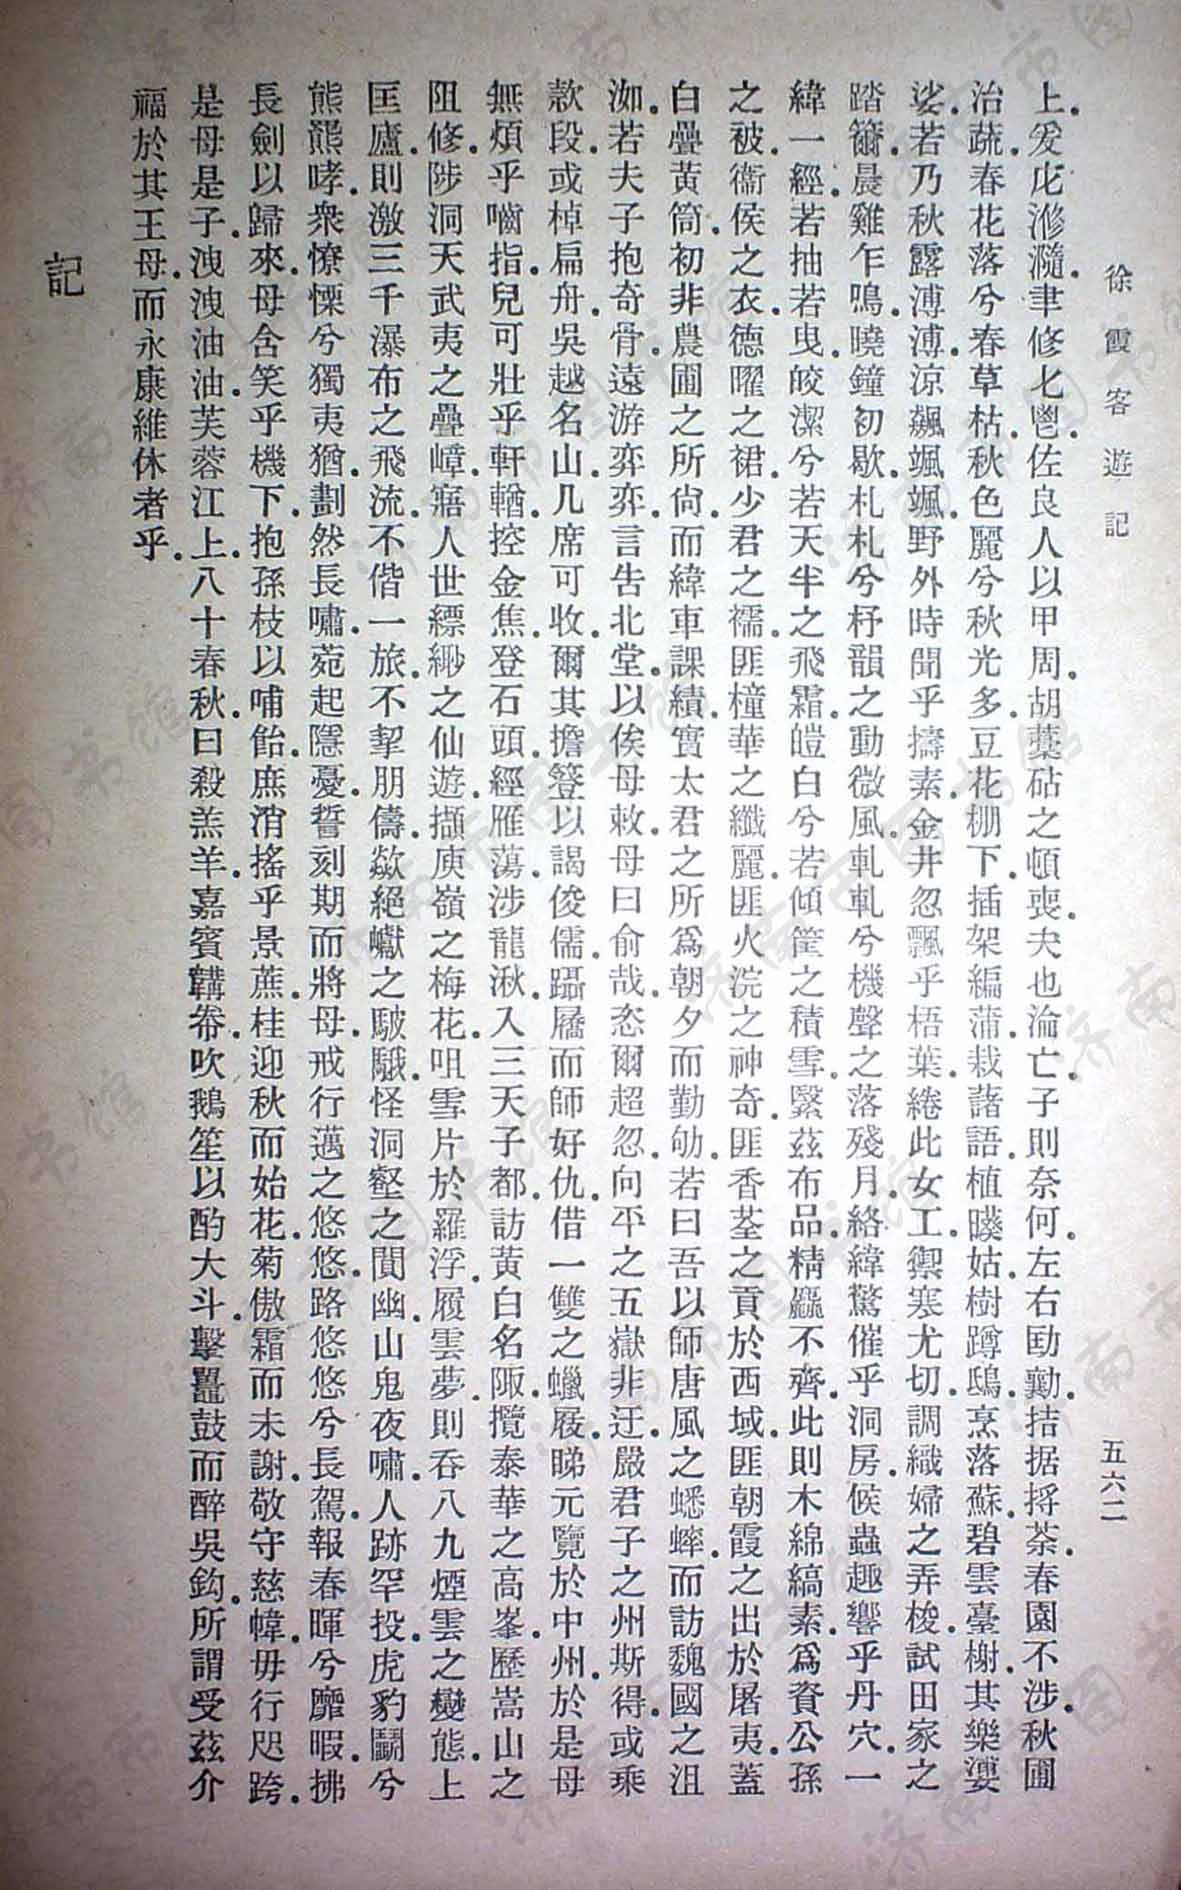 徐霞客遊記
五六二
上.爰庀滫瀡.聿修匕鬯.佐良人以甲周.胡藁砧之頓喪.夫也淪亡.子則奈何.左右劻勷.拮据捋荼.春園不涉.秋圃
治蔬.春花落兮春草枯.秋色麗兮秋光多.豆花棚下.插架編蒲.栽藷語.植䕶姑.樹蹲鴟.烹落蘇.碧雲臺榭.其樂婆
娑.若乃秋露溥溥.涼飆颯颯.野外時聞乎擣素.金井忽飄乎梧葉.綣此女工.禦寒尤切.調織婦之弄梭.試田家之
踏籋.晨雞乍鳴.曉鐘初歇.札札兮杼韻之動微風.軋軋兮機聲之落殘月.絡緯驚催乎洞房.候蟲趣響乎丹穴.一
緯一經.若抽若曳.皎潔兮若天半之飛霜.皚白兮若傾筐之積雪.繄茲布品.精麤不齊.此則木綿縞素.爲資公孫
之被.衞侯之衣.德曜之裙.少君之襦.匪橦華之纖麗.匪火浣之神奇.匪香荃之貢於西域.匪朝霞之出於屠夷.蓋
白疊黃筒.初非農圃之所尙.而緯車課績.實太君之所爲.朝夕而勤劬.若曰吾以師唐風之蟋蟀.而訪魏國之沮
洳.若夫子抱奇骨.遠游弈弈.言吿北堂.以俟母敕.母曰俞哉.恣爾超忽.向平之五嶽非迂.嚴君子之州斯得.或乘
款段.或棹扁舟.吳越名山.几席可收.爾其擔簦以謁俊儒.躡屩而師好仇.借一雙之蠟屐.睇元覽於中州.於是母
無煩乎嚙指.兒可壯乎軒輶.控金焦.登石頭.經雁蕩.涉龍湫.入三天子都.訪黃白名陬.攬泰華之高峯.歷嵩山之
阻修.陟洞天武夷之疊嶂.寤人世縹緲之仙遊.擷庾嶺之梅花.咀雪片於羅浮.履雲夢.則吞八九煙雲之變態.上
匡廬.則激三千瀑布之飛流.不偕一旅.不挈朋儔.歘絕巘之駊騀.怪洞壑之閴幽.山鬼夜嘯.人跡罕投.虎豹鬭兮
熊羆哮.衆憭慄兮獨夷猶.劃然長嘯.菀起隱憂.誓刻期而將母.戒行邁之悠悠.路悠悠兮長駕.報春暉兮靡暇.拂
長劍以歸來.母含笑乎機下.抱孫枝以哺飴.庶消搖乎景蔗.桂迎秋而始花.菊傲霜而未謝.敬守慈幃.毋行咫跨.
是母是子.洩洩油油.芙蓉江上.八十春秋.曰殺羔羊.嘉賓韝帣.吹鵝笙以酌大斗.擊鼉鼓而醉吳鈎.所謂受茲介
福於其王母.而永康維休者乎.
記